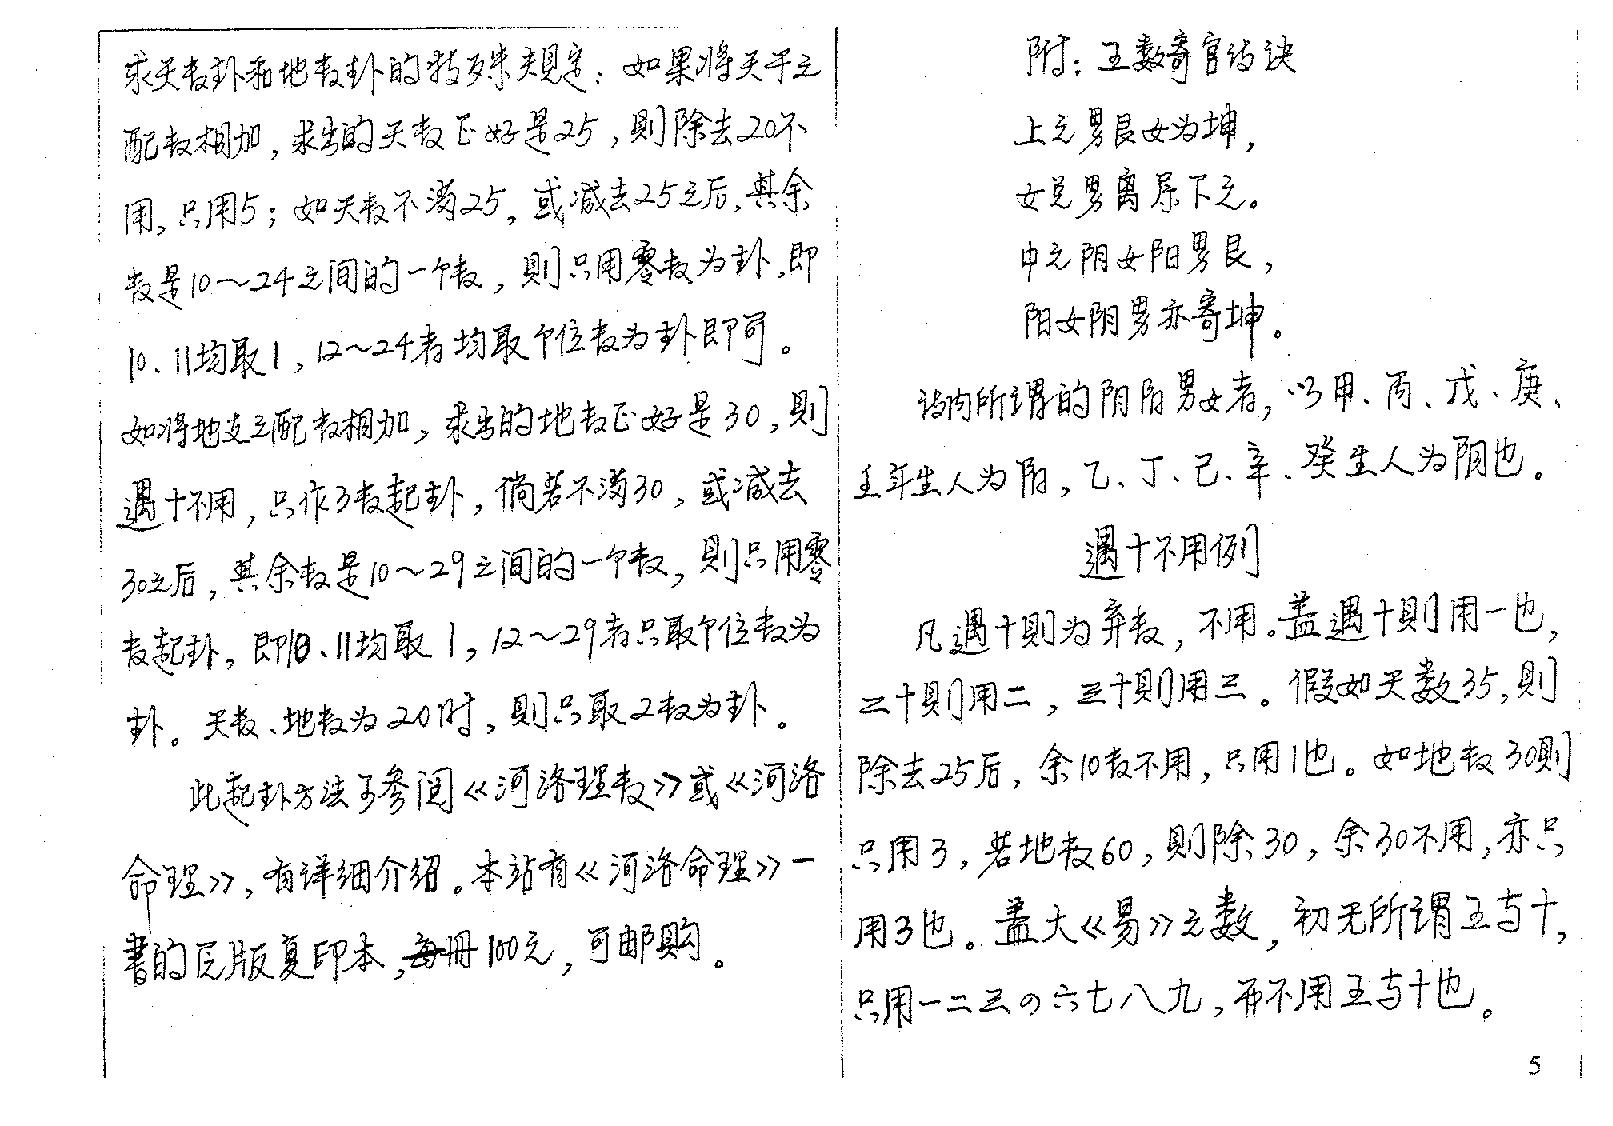 求天数卦和地数卦的特殊规定：如果将天干之
配数相加，求出的天数正好是25，则除去20不
用，只用5；如天数不满25，或减去25之后，其余
数是10～24之间的一个数，则只用零数为卦，即
10、11均取1，12～24者均取个位数为卦即可。
如将地支之配数相加，求出的地数正好是30，则
遇十不用，只作3数起卦，倘若不满30，或减去
30之后，其余数是10～29之间的一个数，则只用零
数起卦，即10、11均取1，12～29者只取个位数为
卦。天数、地数为20时，则只取2数为卦。
此起卦方法可参阅《河洛理数》或《河洛
命理》，有详细介绍。本站有《河洛命理》一
书的民版复印本，每册100元，可邮购。
附：五数寄宫诗诀
上元男艮女为坤，
女兑男离属下元。
中元阴女阳男艮，
阳女阴男亦寄坤。
诗内所谓的阴阳男女者，以甲、丙、戊、庚、
壬年生人为阳，乙、丁、己、辛、癸生人为阴也。
遇十不用例
凡遇十则为弃数，不用。盖遇十则用一也，
二十则用二，三十则用三。假如天数35，则
除去25后，余10数不用，只用1也。如地数30则
只用3，若地数60，则除30，余30不用，亦只
用3也。盖大《易》之数，初无所谓五与十，
只用一二三四六七八九，而不用五与十也。
5